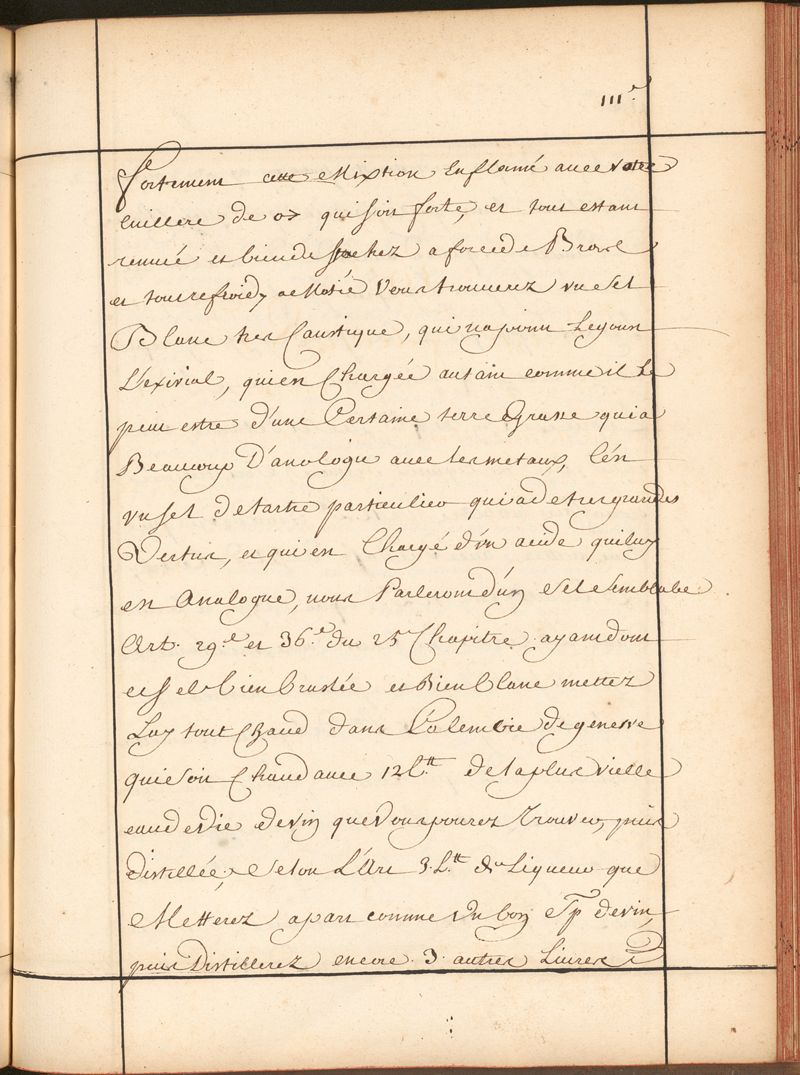 111e
fortement cette Mixtion Enflamé avec votre
Cuillere de  qui soit forte, et tout estant
remué et bien desseché a force de
et tout refroidy a Motié Vous trouverez un Sel
Blanc tres Caustique, qui na point Le goust
Lixivial, qui en Chargée autant comme il le
peut estre d'une Certaine terre Grasse qui a
Beaucoup D'anologie avec les metaux, C'ést
un sel de tartre particulier qui a de tres grandes
Vertus, et qui est Chargé d'un acide qui luy
est Analogue, nous Parlerons d'un Sel Semblable
Art. 29.e et 36.e du 25 Chapitre. ayant dont
ce sel bien bruslée et Bien Blanc mettez
Luy tout Chaud dans L'alembic de
qui Soit Chaud avec 12 L.tt de la plus vielle
eau de Vie de vin que Vous pourez Trouver, puis
distillée, Selon L'Art 3. L.tt de Liqueur que
Metterez a part comme un bon Sp de vin,
puis Distillerez encore 3 autres Livres